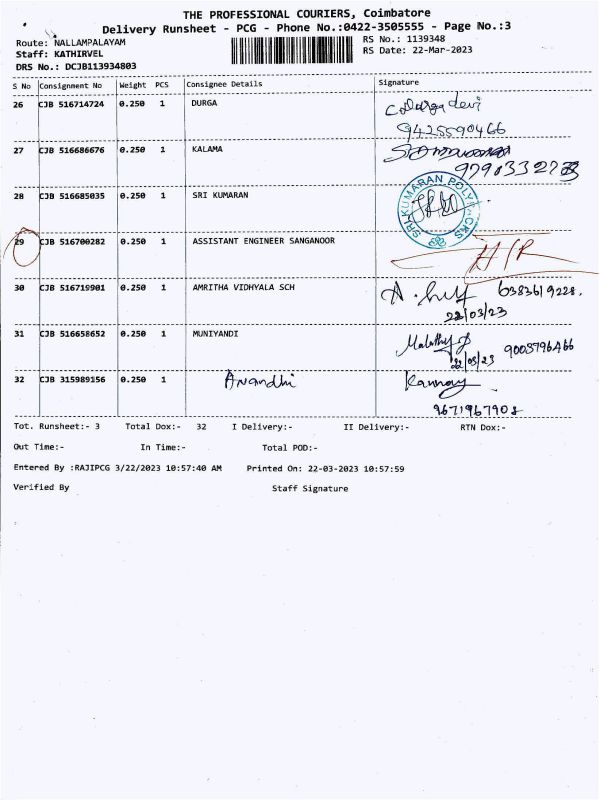 THE PROFESSIONAL COURIERS, Coimbatore
Delivery Runsheet - PCG - Phone No.:0422-3505555 - Page No.:3
Route: NALLAMPALAYAM
RS No.: 1139348
Staff: KATHIRVEL
RS Date: 22-Mar-2023
DRS No.: DCJB113934803
S No Consignment No Weight PCS Consignee Details Signature
26 CJB 516714724 0.250 1 DURGA
9425590466
27 CJB 516686676 0.250 1 KALAMA
28 CJB 516685035 0.250 1 SRI KUMARAN
SRI KUMARAN POLY PACKS
29 CJB 516700282 0.250 1 ASSISTANT ENGINEER SANGANOOR
30 CJB 516719901 0.250 1 AMRITHA VIDHYALA SCH 6383619228.
22/03/23
31 CJB 516658652 0.250 1 MUNIYANDI
22/03/23 9003796466
32 CJB 315989156 0.250 1 Anandhi
9671967908
Tot. Runsheet:- 3 Total Dox:- 32 I Delivery:- II Delivery:- RTN Dox:-
Out Time:- In Time:- Total POD:-
Entered By :RAJIPCG 3/22/2023 10:57:40 AM Printed On: 22-03-2023 10:57:59
Verified By Staff Signature